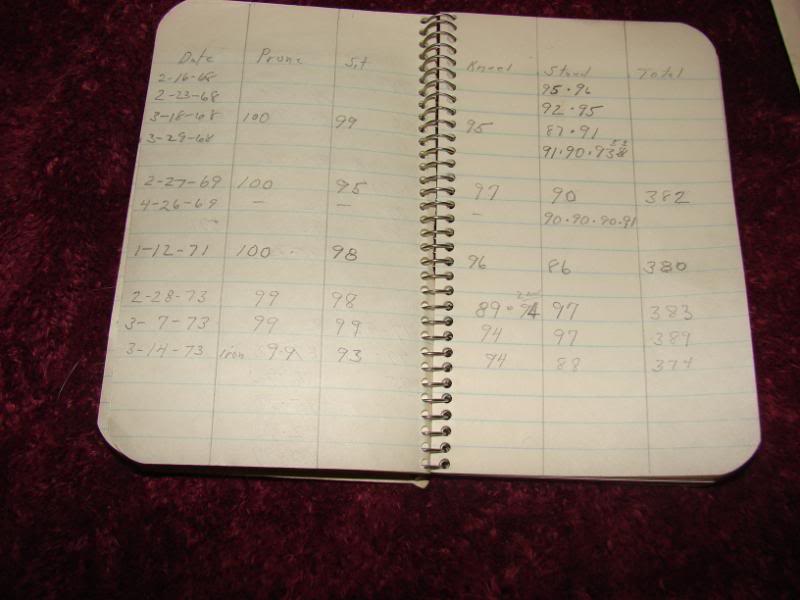 Date Prone Sit Kneel Stand Total
2-16-68 95·96
2-23-68 92·95
3-18-68 100 99 95 87·91
3-29-68 91·90·93
2-27-69 100 95 97 90 382
4-26-69 — — — 90·90·90·91
1-12-71 100 98 96 86 380
2-28-73 99 98 89·94 97 383
3-7-73 99 99 94 97 389
3-14-73 iron 99 93 94 88 374